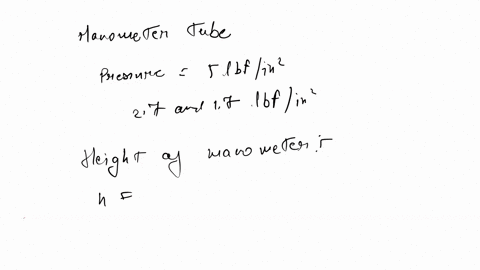 Manometer tube
Pressure = 5 lbf/in²
2.7 and 1.7 lbf/in²
Height of manometer :-
h =